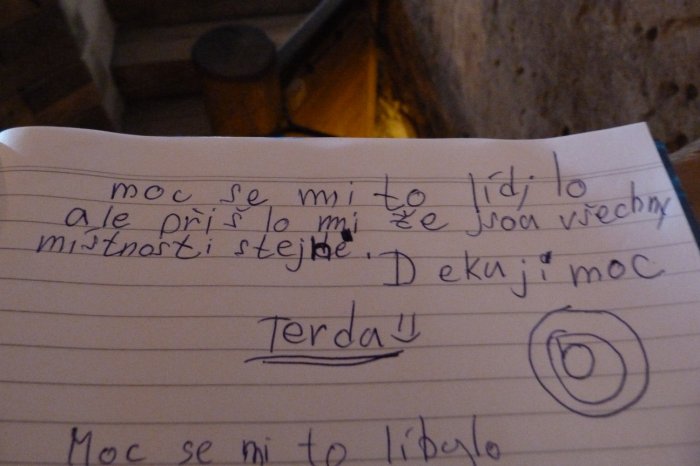 moc se mi to lídjlo
ale přišlo mi že jsou všechny
mištnosti stejné.
Dekuji moc
Terda
Moc se mi to líbylo